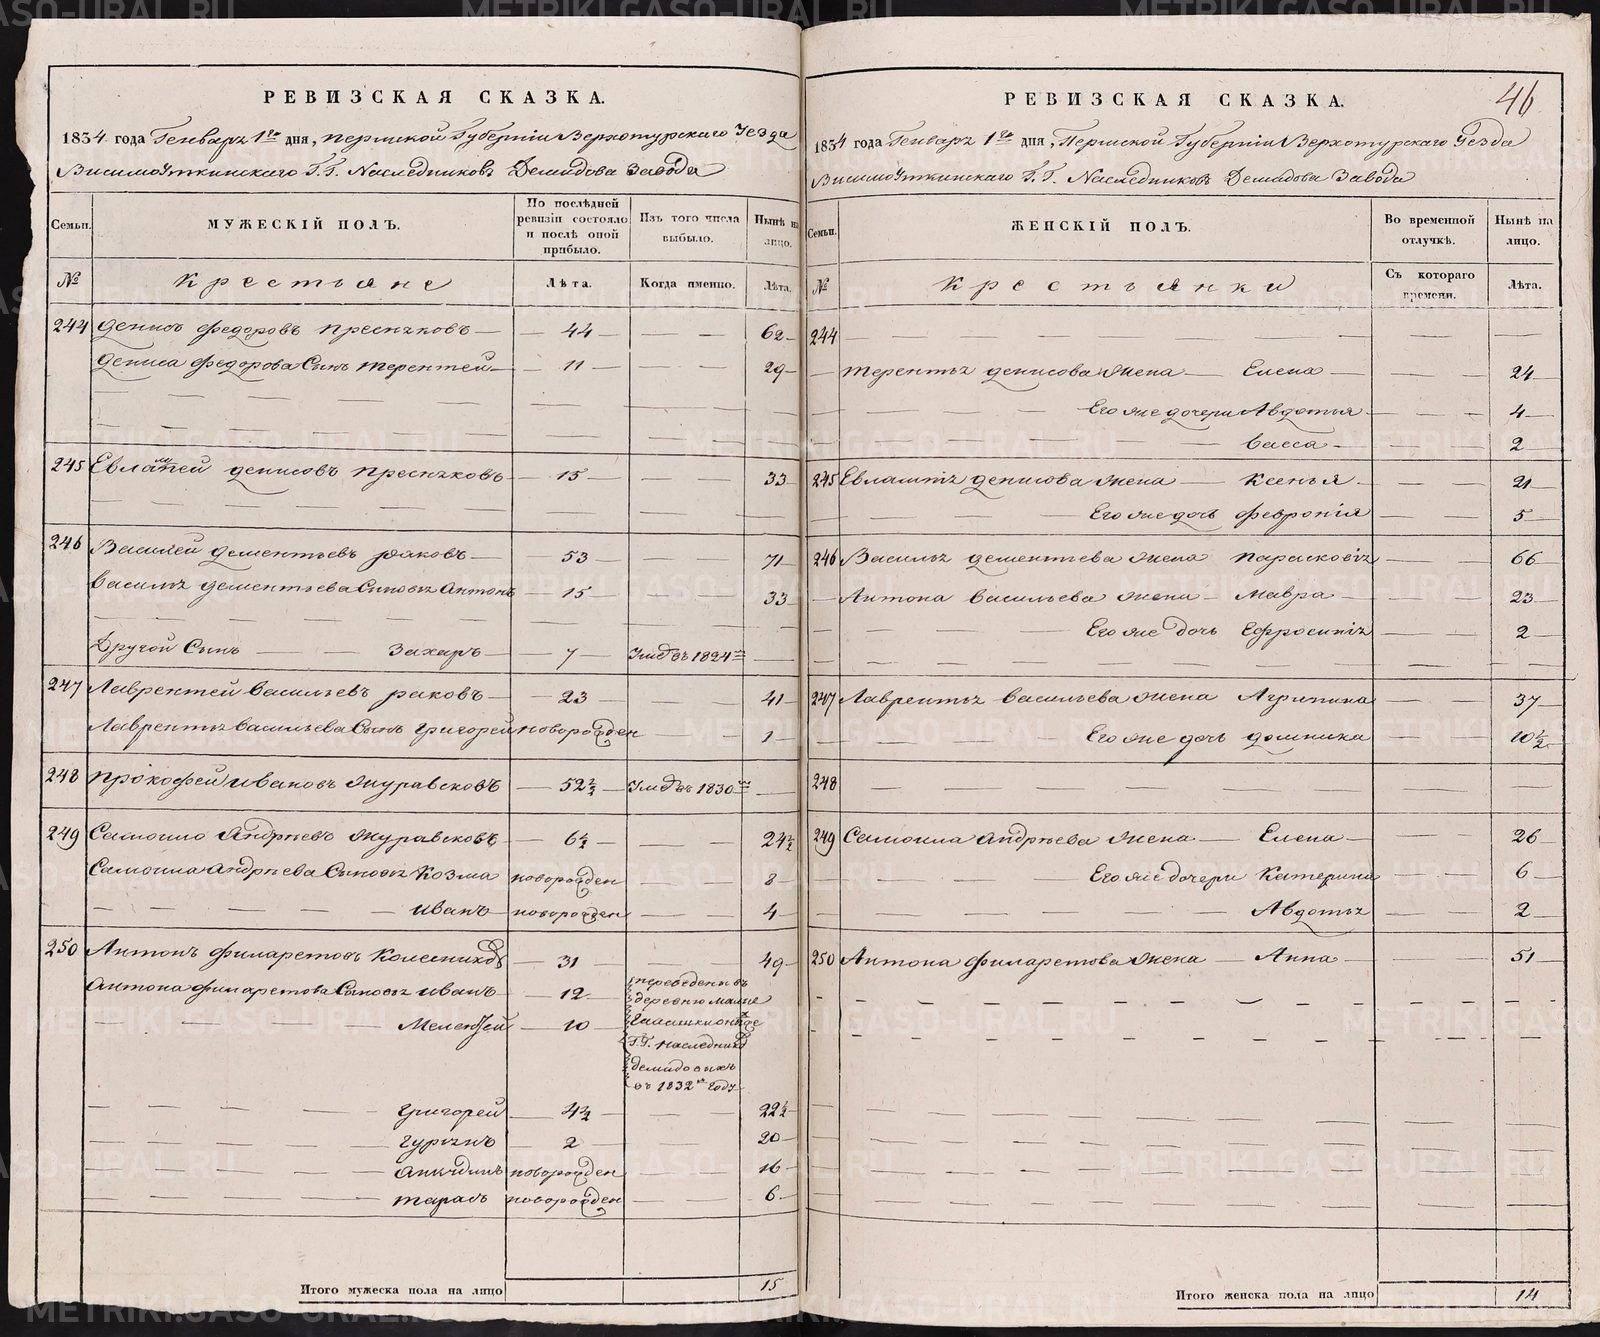 РЕВИЗСКАЯ СКАЗКА.
1834 года Генваря 1го дня, Пермской Губерніи Верхотурскаго Уезда
ВисимоУткинскаго Г.Г. Наследниковъ Демидова Завода
Семьи. МУЖЕСКІЙ ПОЛЪ. По послѣдней ревизіи состояло и послѣ оной прибыло. Изъ того числа выбыло. Нынѣ на лицо.
№ Крестьяне Лѣта. Когда именно. Лѣта.
244 Денисъ Федоровъ Преснѣковъ 44 62
Дениса Федорова Сынъ Терентей 11 29
245 Евлампей Денисовъ Преснѣковъ 15 33
246 Василей Дементьевъ Раковъ 53 71
Василья Дементьева Сыновья Антонъ 15 33
Другой Сынъ Захаръ 7 Умеръ въ 1824м
247 Лаврентей Васильевъ Раковъ 23 41
Лаврентья Васильева Сынъ Григорей новорожден 1
248 Прокофей Ивановъ Журавсковъ 52½ Умеръ въ 1830м
249 Самоило Андрѣевъ Журавсковъ 6½ 24½
Самоила Андрѣева Сыновья Козма новорожден 8
Иванъ новорожден 4
250 Антонъ Филаретовъ Колесниковъ 31 49
Антона Филаретова Сыновья Иванъ 12 переведены въ
деревню
Мелентей 10
Г.Г. Наследников
Демидовыхъ
въ 1832м году
Григорей 4½ 22½
Гурьянъ 2 20
новорожден 16
Тарасъ новорожден 6
Итого мужеска пола на лицо 15
46
РЕВИЗСКАЯ СКАЗКА.
1834 года Генваря 1го дня, Пермской Губерніи Верхотурскаго Уезда
ВисимоУткинскаго Г.Г. Наследниковъ Демидова Завода
Семьи. ЖЕНСКІЙ ПОЛЪ. Во временной отлучкѣ. Нынѣ на лицо.
№ Крестьянки Съ котораго времени. Лѣта.
244
Терентья Денисова Жена Елена 24
Его же дочери Авдотья 4
Васса 2
245 Евлампія Денисова Жена Ксенья 21
Его же дочь Февронія 5
246 Василья Дементьева Жена Парасковія 66
Антона Васильева Жена Мавра 23
Его же дочь Ефросинія 2
247 Лаврентья Васильева Жена Агрипина 37
Его же дочь Домника 10½
248
249 Самоила Андрѣева Жена Елена 26
Его же дочери Катерина 6
Авдотья 2
250 Антона Филаретова Жена Анна 51
Итого женска пола на лицо 14
METRIKI.GASO-URAL.RU